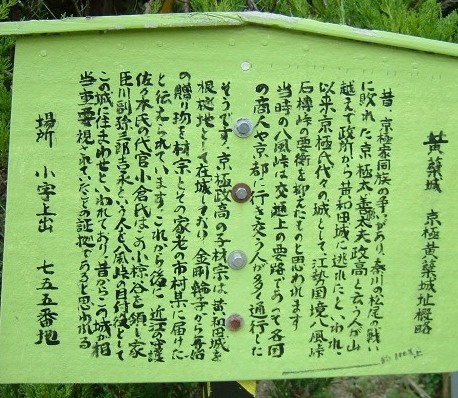 黄蘗城 京極黄蘗城址概略
昔、京極家同族の争いがあり、秦川の松尾の戦い
に敗れた京極太善太夫政高と云う人が山
越えで政所から黄和田城に逃れたといわれ、
以来京極氏代々の城として江勢国境八風峠
石榑峠の要衝を抑えたものと思われます
当時の八風峠は交通上の要路であって各国
の商人や京都に行き交う人が多く通行した
そうです。京極政高の子材宗は黄和田城を
根拠地として在城しており金剛輪寺から再治
の贈り物を材宗とその家老の市村某に届けた
と伝えられています。これから後に近江守護
佐々木氏の代官小倉氏はこの小椋谷を領し家
臣川副弥三郎吉承という人を八風峠の目付役として
この城に住まわせといわれており、昔からこの城が相
当重要視されていたことの証拠であると思われる
場所 小字上出 七五五番地